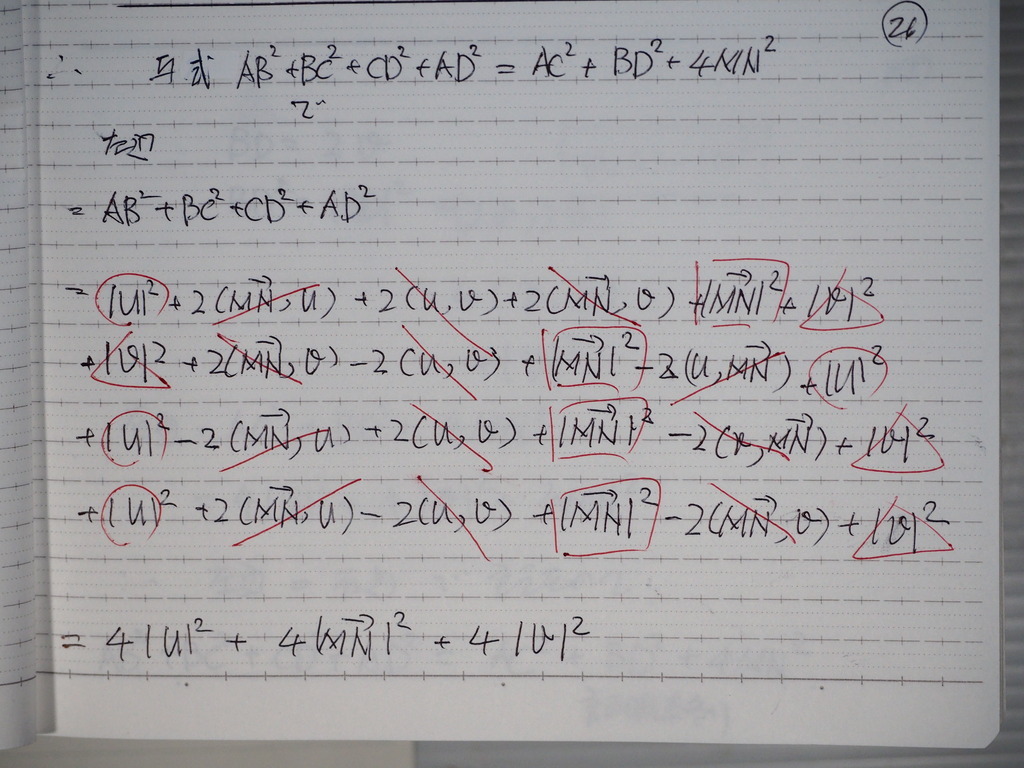 26
∴ 与式 AB²+BC²+CD²+AD² = AC²+BD²+4MN²
で
左辺
= AB²+BC²+CD²+AD²
= |u|²+2(MN→,u)+2(u,v)+2(MN→,v)+|MN→|²+|v|²
+|v|²+2(MN→,v)-2(u,v)+|MN→|²-2(u,MN→)+|u|²
+|u|²-2(MN→,u)+2(u,v)+|MN→|²-2(v,MN→)+|v|²
+|u|²+2(MN→,u)-2(u,v)+|MN→|²-2(MN→,v)+|v|²
= 4|u|²+4|MN→|²+4|v|²